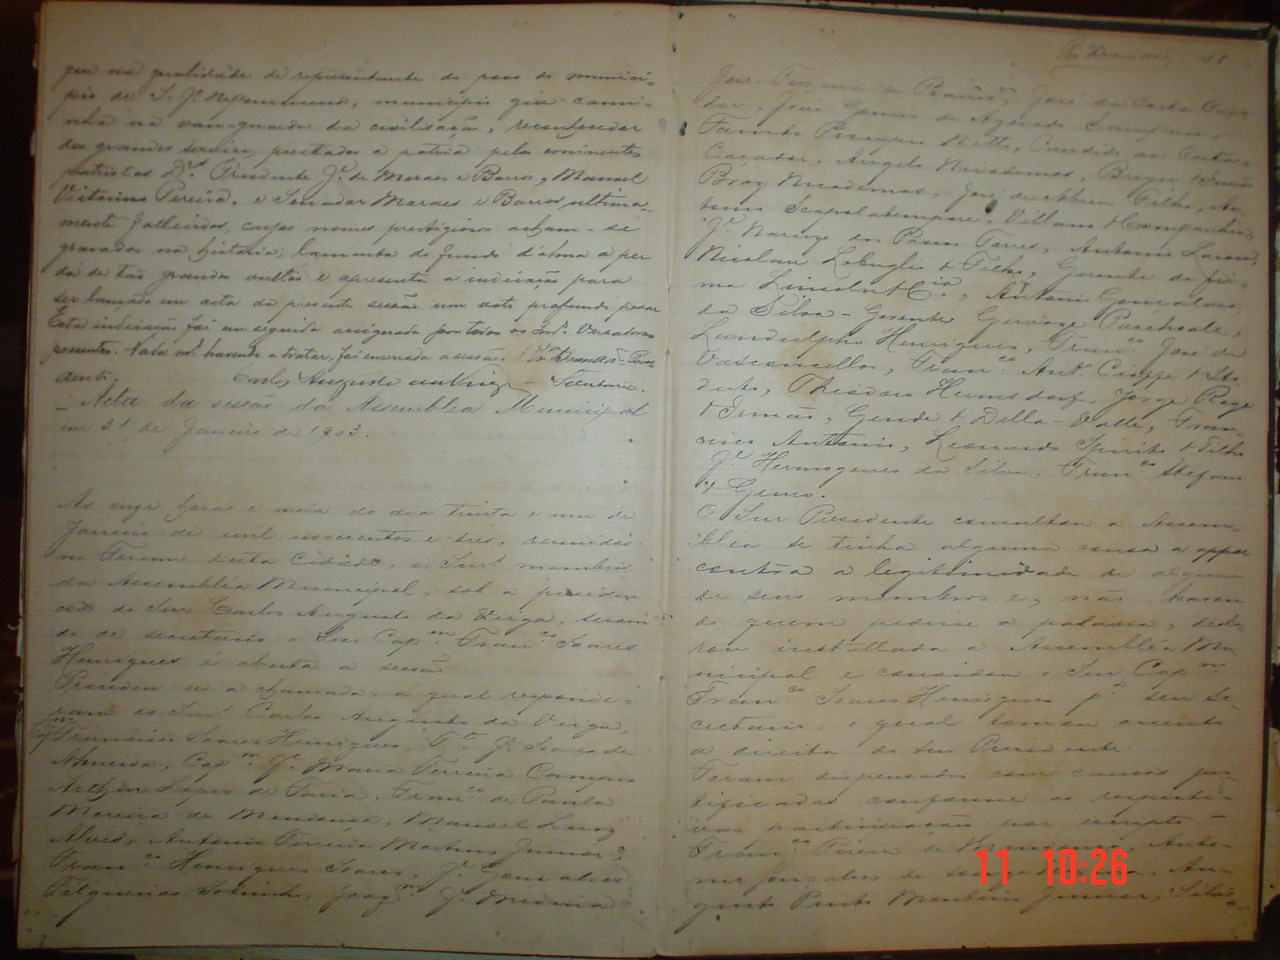 que na qualidade de representante do povo do munici-
pio de S. Jº Nepomuceno, municipio que cami-
nha na van-guarda da civilisação, reconhecedor
dos grandes serviços prestados a patria pelos eminentes
patriotas Drs. Prudente Jº de Moraes e Barros, Manoel
Victorino Pereira, e Senador Moraes e Barros, ultima-
mente fallecidos, cujos nomes prestigiosos acham-se
gravados na historia; lamenta do fundo d'alma a per
da de tão grandes vultos e apresenta a indicação para
ser lançado em acta da presente sessão um voto profundo pesar
Esta indicação foi em seguida assignada por todos os Snrs. Vereadores
presentes. Nada mais havendo a tratar, foi encerrada a sessão.
Carlos Augusto da Veiga - Secretario.
- Acta da sessão da Assembléa Municipal
em 31 de Janeiro de 1903.
As onze horas e meia do dia trinta e um de
Janeiro de mil novecentos e tres, reunidos
no Forum desta Cidade, os Snrs. membros
da Assembléa Municipal, sob a presiden
cia do Snr Carlos Augusto da Veiga, servin
do de secretario o Snr Capm Franco Soares
Henriques é aberta a sessão
Procedeu-se a chamada, a qual responde-
ram os Snrs. Carlos Augusto da Veiga,
Francisco Soares Henriques, Te Jº Soares de
Almeida, Capm Jº Maria Ferreira Campos
Arthur Lopes de Faria, Franco de Paula
Moreira de Mendonça, Manoel Luiz
Alves, Antonio Ferreira Martins Junior,
Franco Henriques Soares, Jº Gonçalves
Filgueiras Sobrinho, Joaqm Jº Medina
48
José da Costa
José Gomes de Azevedo Sampaio,
Netto, Candido da Costa
Angelo Nicodemos, Irmão
Braz Nicodemos, José de Abreu Filho, An-
tonio Scapolatempore, Villani & Companhia,
Jº Narcizo dos Passos Torres, Antonio
Nicolau Lobuglio & Filho, Gerente da fir-
ma Lincoln & Cia, Antonio Gonçalves
da Silva - Gerente, Gervasio Paschoale,
Landulpho Henriques, Franco José de
Vasconcellos, Franco Anto
Theodoro Hermsdorf, Jorge
& Irmão, Gende & Della-Valle, Fran-
cisco Antonio, Leonardo Spirito & Filho
Jº Hermogenes da Silva, Franco Stefani
& Genro.
O Snr Presidente consultou a Assem-
bléa se tinha alguma cousa a oppor
contra a legitimidade de algum
de seus membros e, não haven
do quem pedisse a palavra, decla-
rou installada a Assembléa Mu
nicipal e convidou o Snr Capm
Franco Soares Henriques pa seu Se-
cretario, o qual tomou assento
a direita do Snr Presidente.
Foram dispensados com causas jus-
tificadas conforme as respecti-
vas participações por escripto -
Franco Pereira de Anto-
nio Gonçalves de Au-
gusto Pinto Monteiro Junior, Silva
11 10:26